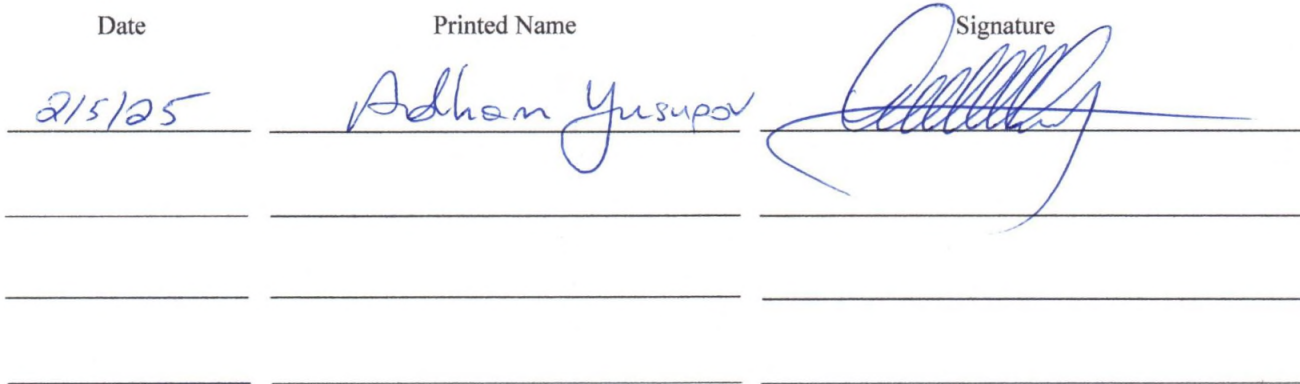 Date Printed Name Signature
2/5/25 Adham Yusupov